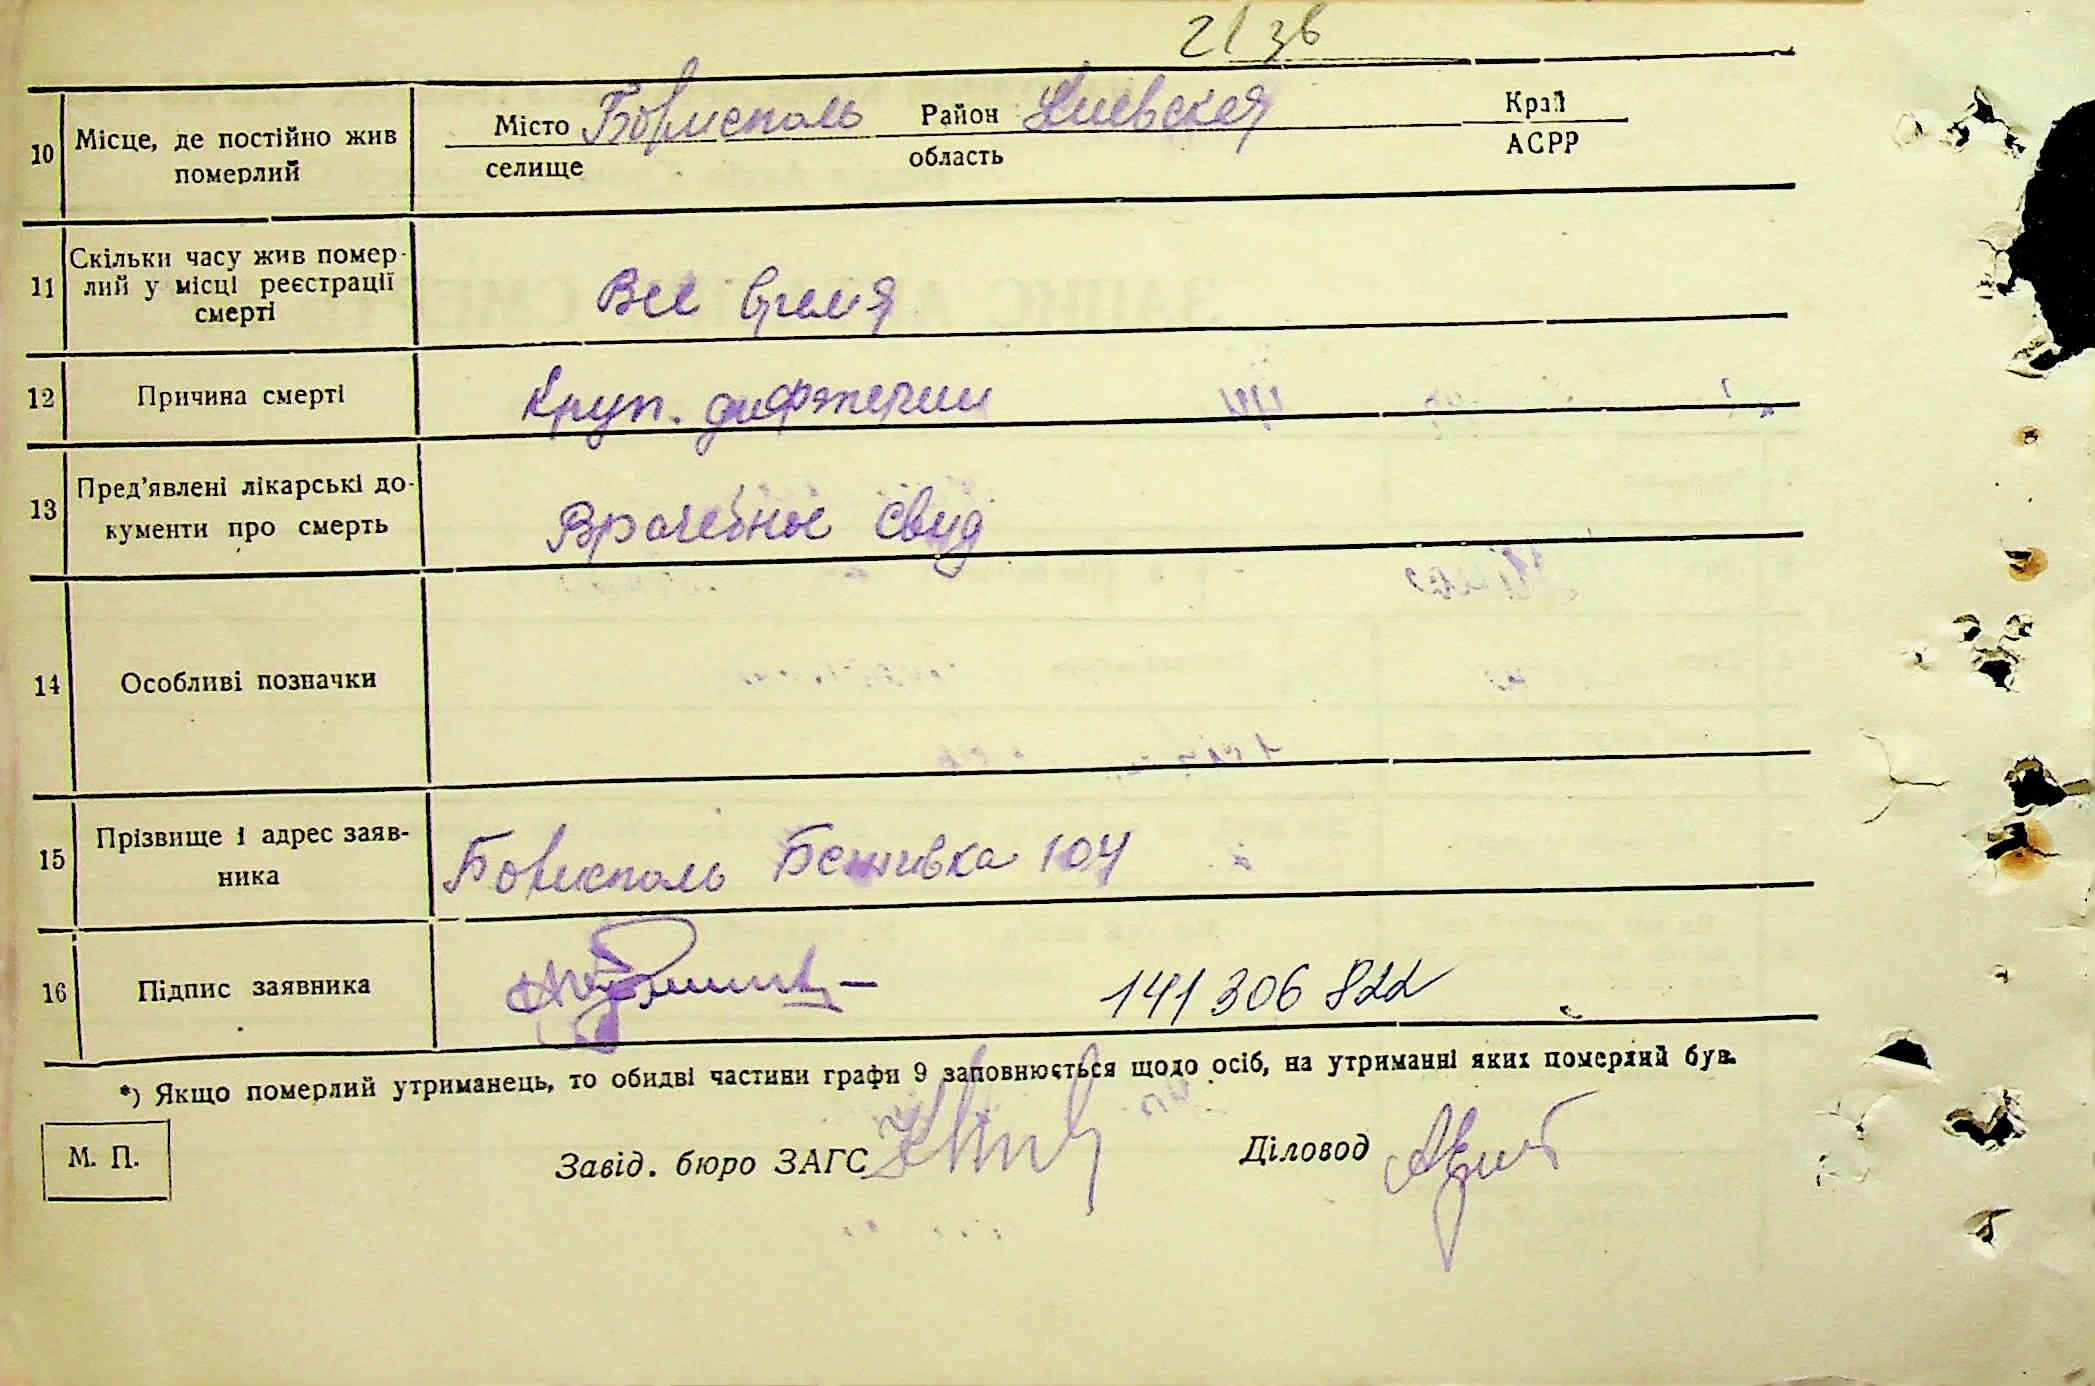 21 зв
10 Місце, де постійно жив померлий Місто селище Борисполь Район область Киевская Край АСРР
11 Скільки часу жив померлий у місці реєстрації смерті Все время
12 Причина смерті Круп. дифтерии
13 Пред'явлені лікарські документи про смерть Врачебное свид
14 Особливі позначки
15 Прізвище і адрес заявника Борисполь 104
16 Підпис заявника 141 306 822
*) Якщо померлий утриманець, то обидві частини графи 9 заповнюється щодо осіб, на утриманні яких померлий був.
М. П. Завід. бюро ЗАГС Діловод